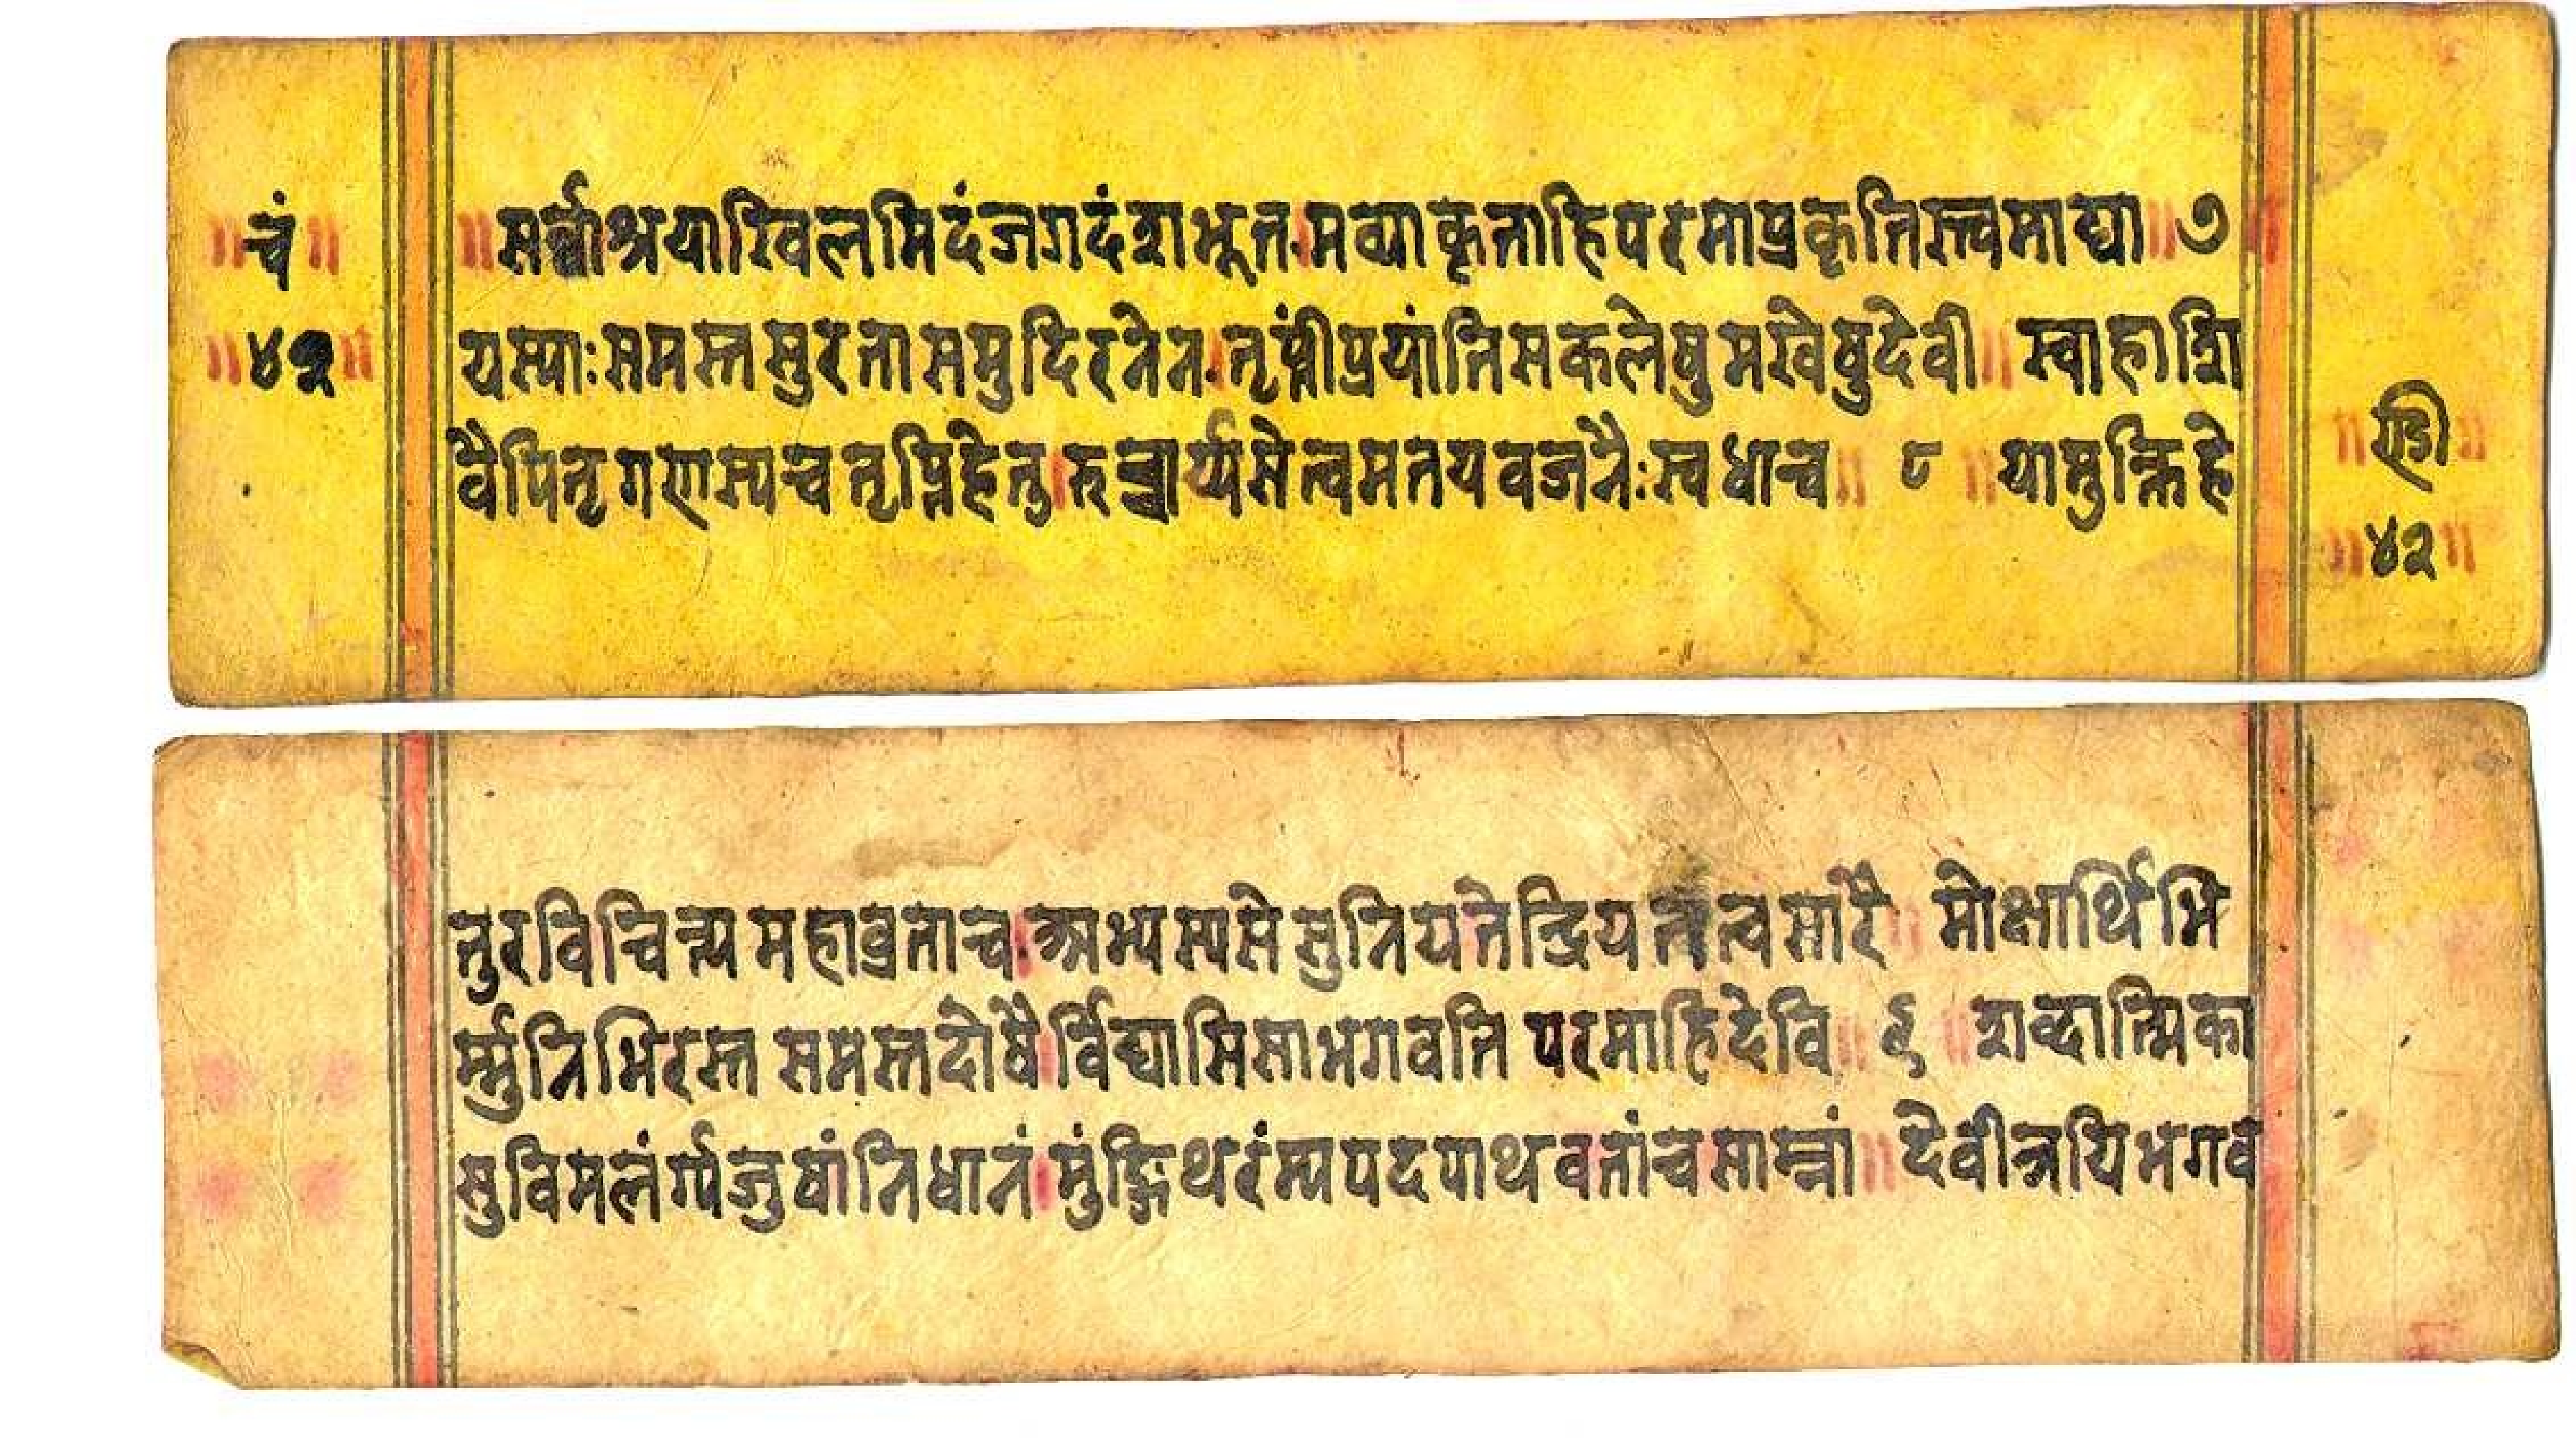 ॥ चं ॥
॥ ४२ ॥
॥ सर्वाश्रयाखिलमिदंजगदंशभूत।मव्याकृताहिपरमाप्रकृतिस्त्वमाद्या ॥ ७
यस्याःसमस्तसुरतासमुदिरतेन।तृप्तींप्रयांतिसकलेषुमखेषुदेवी ॥ स्वाहाशि
वैपितृगणस्यचतृप्तिहेतु।रुच्चार्य्यसेत्वमतयवजनैःस्वधाच ॥ ८ ॥ यामुक्तिहे
॥ ण्डी ॥
॥ ४२ ॥
तुरविचिन्त्यमहाव्रताच।अभ्यस्यसेसुनियतेन्द्रियतत्वसारै ॥ मोक्षार्थिभि
र्म्मुनिभिरस्तसमस्तदोषै।र्विद्यासिसाभगवतिपरमाहिदेवि ॥ ९ ॥ शब्दात्मिका
सुविमलंर्ग्यजुषांनिधानं।मुंङ्गिथरंम्यपदपाथवतांचसाम्नां ॥ देवीत्रयिभगव